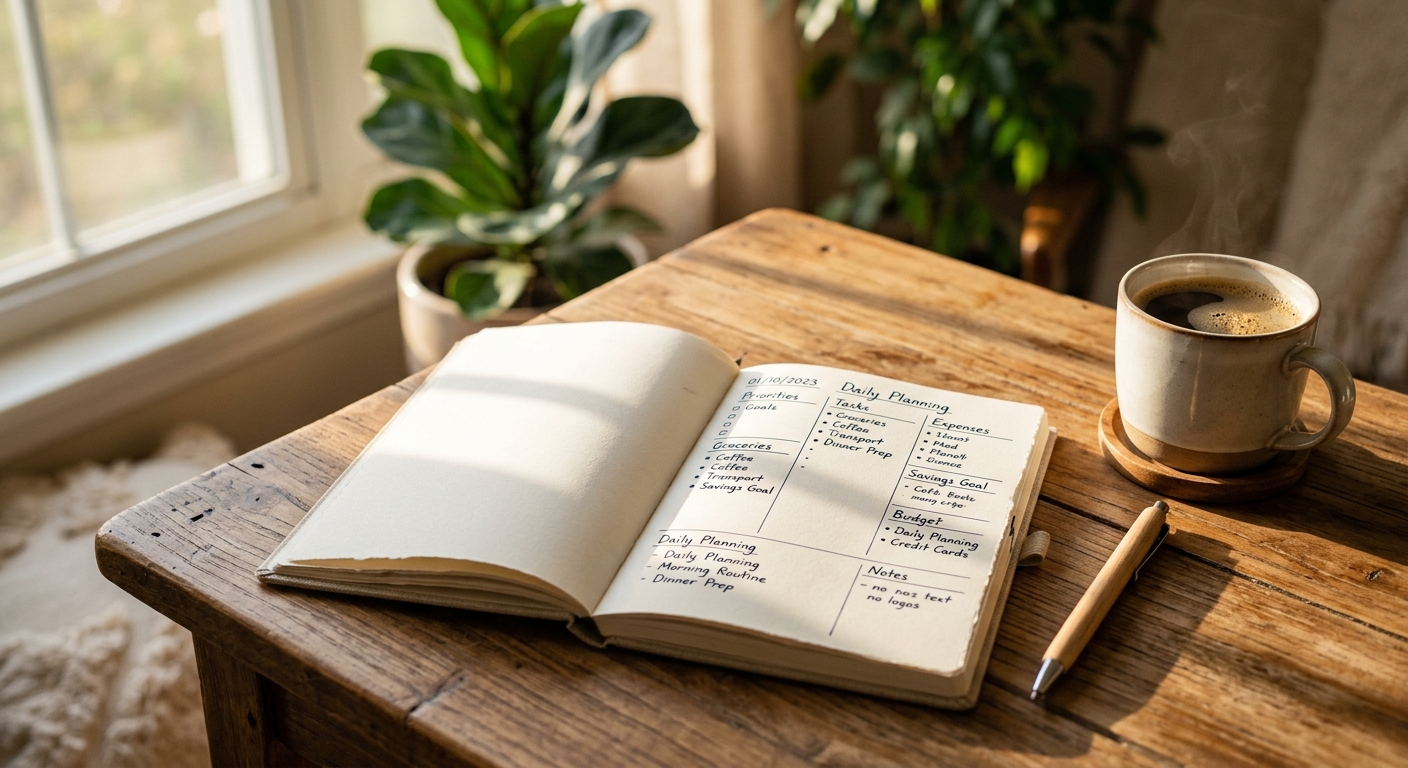 01/10/2023
Daily Planning
Priorities
Goals
Groceries
• Coffee
• Coffee
• Transport
• Savings Goal
Tasks
• Groceries
• Coffee
• Transport
• Dinner Prep
Expenses
Savings Goal
Budget
• Daily Planning
• Credit Cards
Daily Planning
- Daily Planning
- Morning Routine
- Dinner Prep
Notes
- no text
no logos